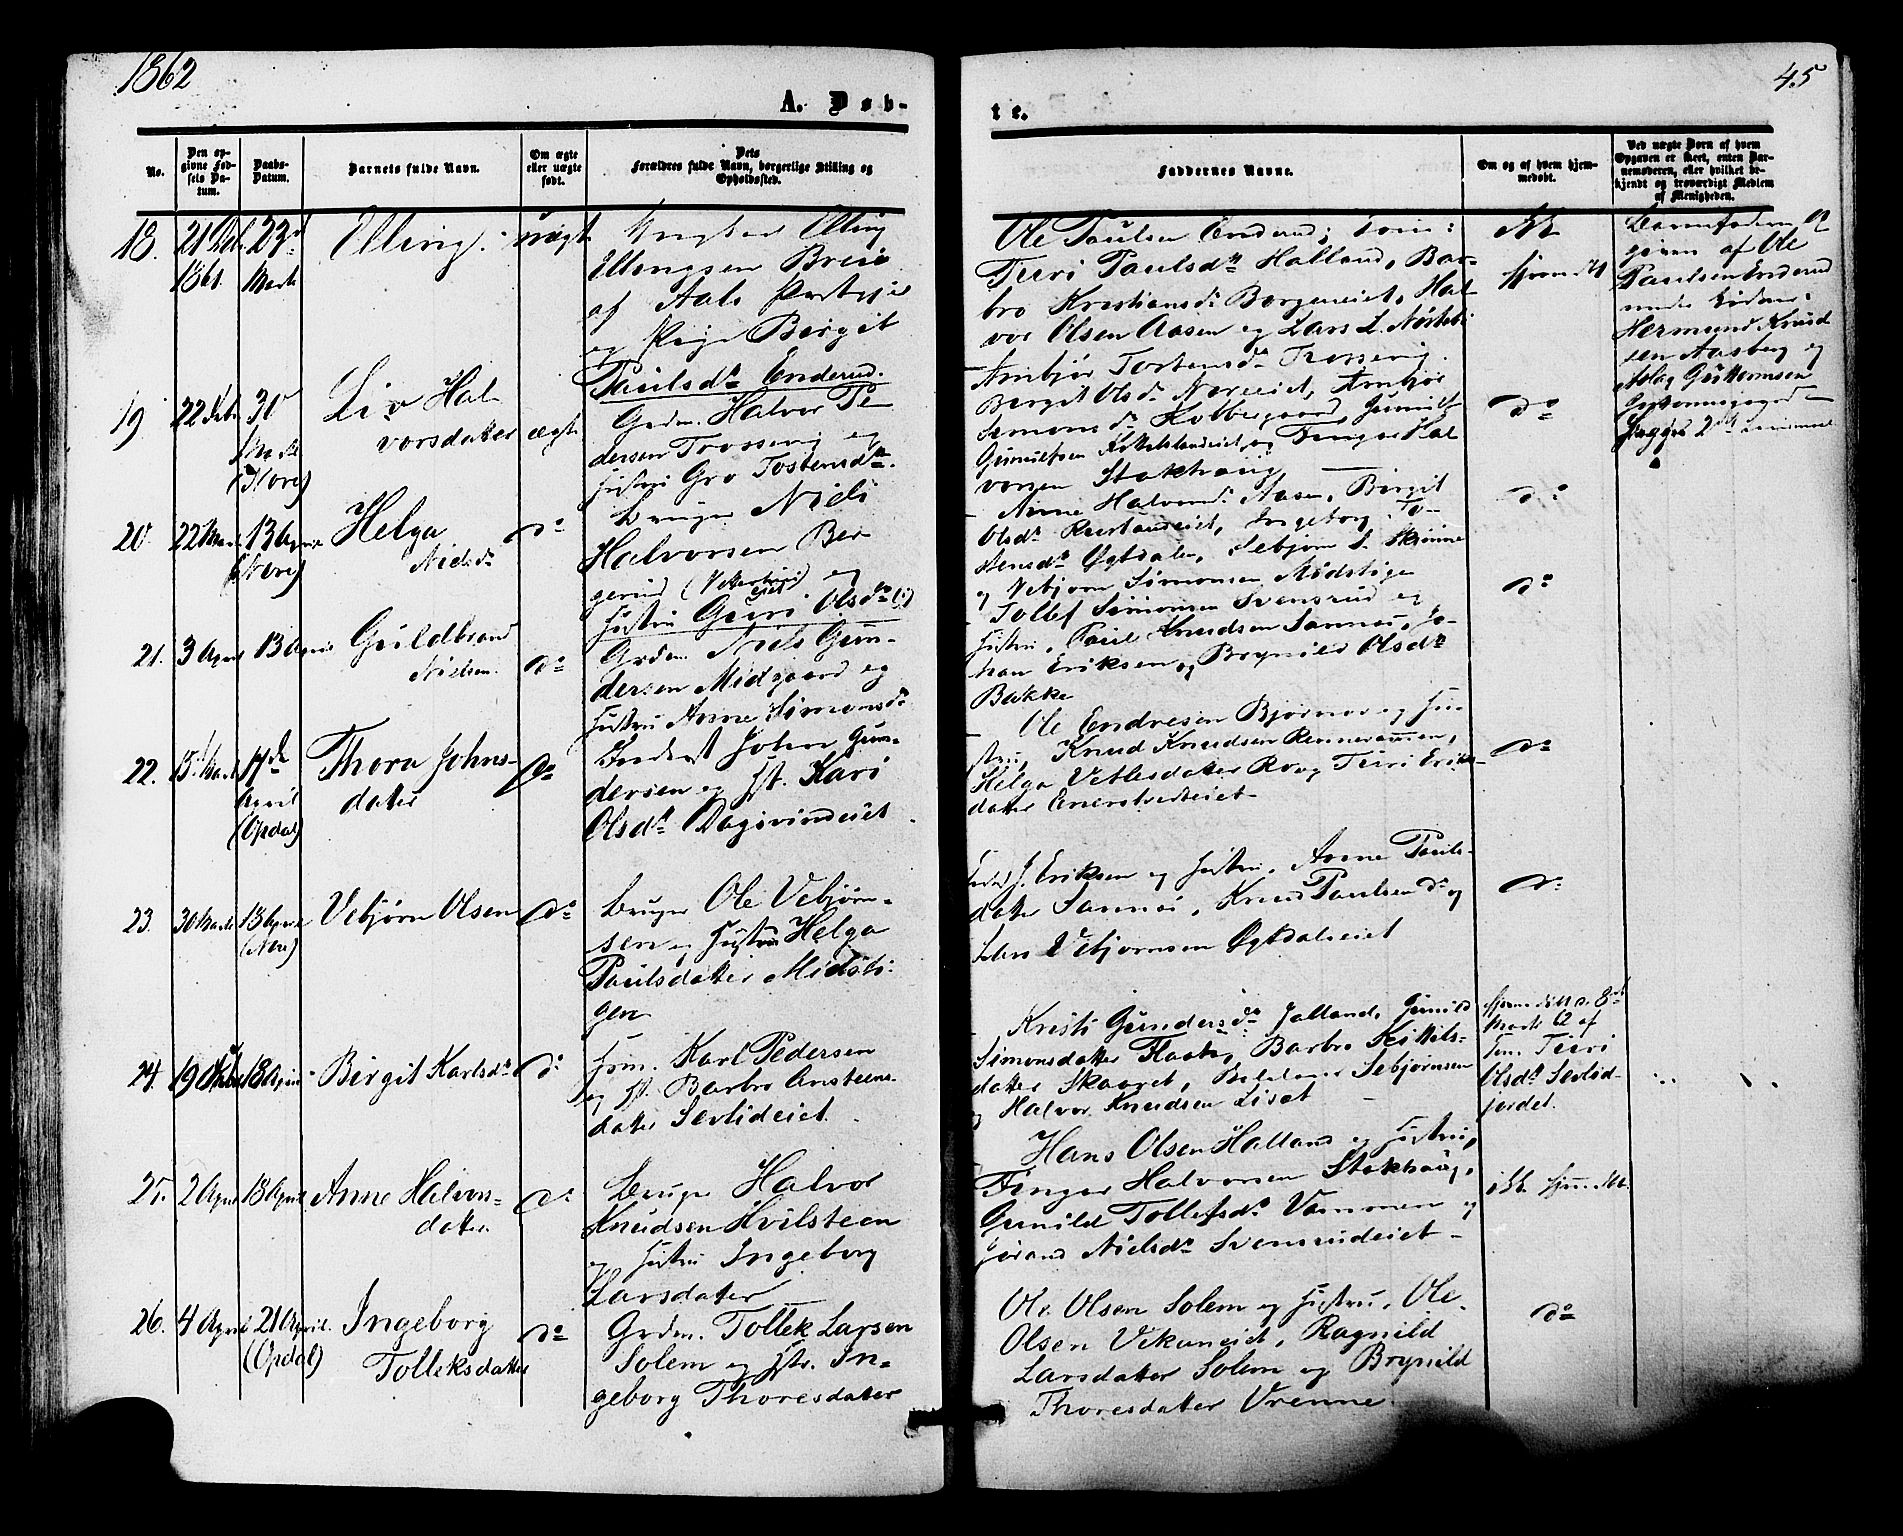 1862
45
A. Døb-
te.
No.
Den op-
givne Fød-
sels Da-
tum.
Daabs-
Datum.
Barnets fulde Navn.
Om ægte
eller uægte
født.
Dets
Forældres fulde Navn, borgerlige Stilling og
Opholdssted.
Faddernes Navne.
Om og af hvem hjem-
medøbt.
Ved uægte Børn af hvem
Opgaven er skeet, enten Bar-
nemoderen, eller hvilket be-
kjendt og troværdigt Medlem
af Menigheden.
18.
21 Dcb.
1861.
23d
Marts
Elling.
uægt
Ungkar Elling
Ellingsen Breie
af Aals Præstegj
og Pige Birgit
Paulsdr Enderud.
Ole Paulsen Enderud,
Turi Paulsdr Halland, Bar-
bro Kristiansdr Borgeneiet, Hal
vor Olsen Aasen og Lars L. Nørstebø
Ikke
hjemdbt
Barnefaderen op
given af Ole
Paulsen Enderud
under
Hermund Knud
sen Aasberg og
Aslag Guttormsen
19
22 Febr
30
Marts
(Nore)
Liv Hal
vorsdatter
ægte
Grdm. Halvor Pe
dersen Trossevig og
Hustru Gro Tostensdr.
Ambjør Tostensdr Trossevig.
Bergit Olsdr Noreeiet, Ambjør
Simonsdr Hobbesgaard, Gunulf
Gunulfsen Kirkelandeiet og Finger Hal
vorsen Stokhaug
do
20.
22 Marts
13 April
(Nore)
Helga
Nielsdr
do
Bruger Niels
Halvorsen Ber
gerud og
Hustru Guri Olsdr
Anne Halvorsdr Aasen, Birgit
Olsdr Raustaneiet, Ingeborg To-
stensdr Øgtdalen, Sebjørn S. Skjønne
og Vebjørn Simonsen Midstigen
do
21.
3 April
13 April
Guldbrand
Nielsen.
do
Grdm. Niels Gun-
dersen Midgaard og
Hustru Anne Simonsdr
Tollef Simonsen Svensrud og
Hustru, Paul Knudsen Sannes, Jo-
han Eriksen og Brynild Olsdr
Bakke
do
22.
15 Marts
17de
April
(Opdal)
Thora Johns-
datter
do
Inderst John Gun-
dersen og H. Kari
Olsdr Dagsvindeiet
Ole Endresen Bjørnaa og Hu-
stru, Knud Knudsen Renneraunen,
Helga Vetlesdatter Ro og Turi Eriks-
datter Enerstvedteiet
do
23.
30 Marts
13 April
(Nore)
Vebjørn Olsen
do
Bruger Ole Vebjørn-
sen og Hustru Helga
Paulsdatter Midsti-
gen
J. Eriksen og Hustru, Anne Pauls-
datter Sannes, Knud Paulsen do og
Vebjørnsen Øgtdalseiet
do
24.
19
18 April
Birgit Karlsdr
do
Hsm. Karl Pedersen
og H. Barbro Ansteens-
datter Sevlideiet.
Kristi Gundersdr Jalland, Gunild
Simonsdatter Flaata, Barbro Kittils-
datter Skaaret, Sebjørnsen
og Halvor Knudsen Liset
hjemmedbt d. 8de
Marts 62 af
Turi
Olsdr Sevlid-
jordet.
25.
2 April
18 April
Anne Halvors-
datter
do
Bruger Halvor
Knudsen Hvilsteen
og Hustru Ingeborg
Larsdatter
Hans Olsen Halland og Hustru,
Finger Halvorsen Stokhaug,
Gunild Tollefsdr Vammen og
Jørand Nielsdr Svensrudeiet
ikke hjem. dbt.
26.
4 April
21 April
(Opdal)
Ingeborg
Tolleksdatter
do
Grdm. Tollek Larsen
Solem og Hst. In-
geborg Thoresdatter
Ole Olsen Solem og Hustru, Ole
Olsen Vikaneiet, Ragnild
Larsdatter Solem og Brynild
Thoresdatter Vrenne
do